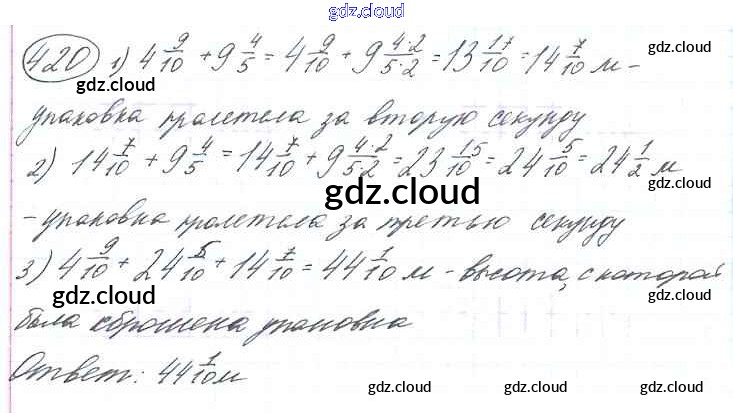 gdz.cloud
gdz.cloud
420 1) 4 9/10 + 9 4/5 = 4 9/10 + 9 4·2/5·2 = 13 17/10 = 14 7/10 м -
gdz.cloud
gdz.cloud
упаковка пролетела за вторую секунду
gdz.cloud
2) 14 7/10 + 9 4/5 = 14 7/10 + 9 4·2/5·2 = 23 15/10 = 24 5/10 = 24 1/2 м
gdz.cloud
gdz.cloud
- упаковка пролетела за третью секунду
3) 4 9/10 + 24 5/10 + 14 7/10 = 44 1/10 м - высота, с которой
gdz.cloud
gdz.cloud
была сброшена упаковка
Ответ: 44 1/10 м
gdz.cloud
gdz.cloud
gdz.cloud